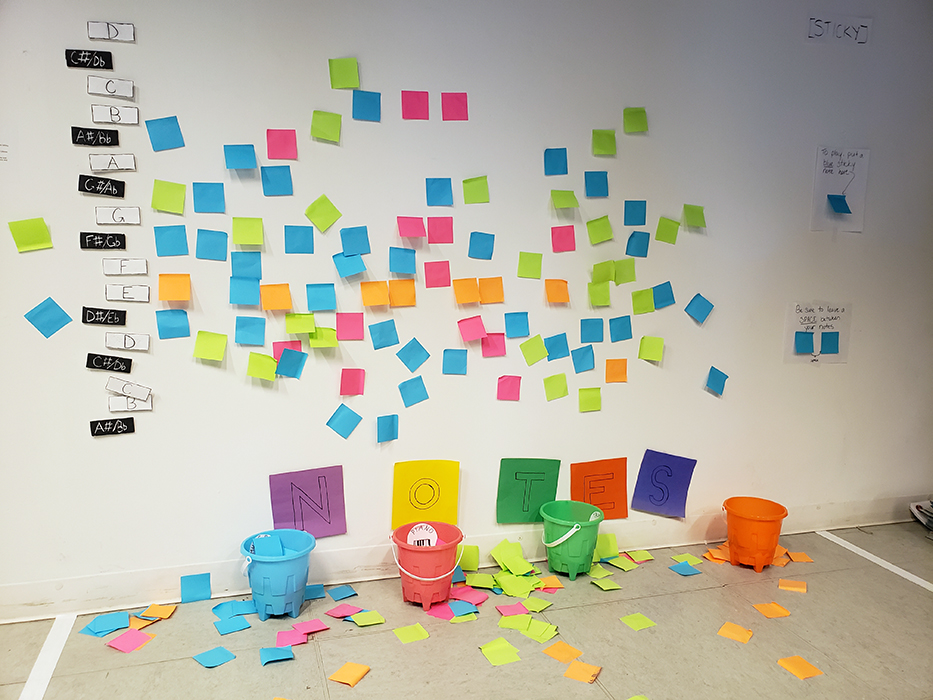 D
C#/Db
C
B
A#/Bb
A
G#/Ab
G
F#/Gb
F
E
D#/Eb
D
C#/Db
C
B
A#/Bb
[STICKY]
To play, put a
blue sticky
note here
Be sure to leave a
SPACE between
your notes
N O T E S
PIANO